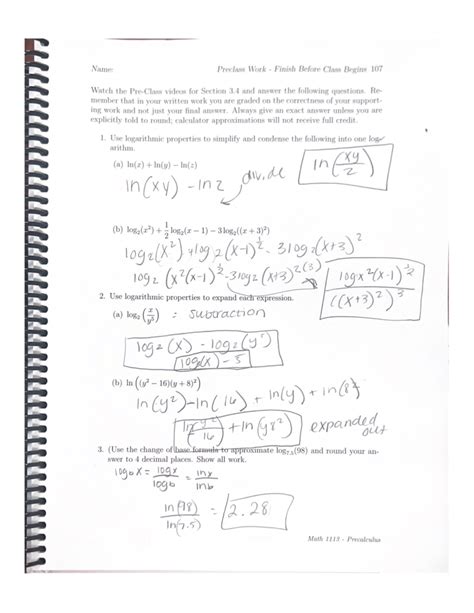 Name: Preclass Work - Finish Before Class Begins 107
Watch the Pre-Class videos for Section 3.4 and answer the following questions. Re-
member that in your written work you are graded on the correctness of your support-
ing work and not just your final answer. Always give an exact answer unless you are
explicitly told to round; calculator approximations will not receive full credit.
1. Use logarithmic properties to simplify and condense the following into one log-
arithm.
(a) ln(x) + ln(y) − ln(z)
ln(xy) - ln z divide ln(xy/z)
(b) log₂(x²) + 1/2 log₂(x − 1) − 3 log₂((x + 3)²)
log₂(x²) + log₂(x-1)^½ - 3log₂(x+3)²
log₂(x²(x-1)^½ - 3log₂(x+3)²⁽³⁾ logx²(x-1)^½ / ((x+3)²)³
2. Use logarithmic properties to expand each expression.
(a) log₂(x/y⁵) = subtraction
log₂(x) - log₂(y⁵)
log₂(x) - 5
(b) ln((y² − 16)(y + 8)²)
ln(y²) - ln(16) + ln(y) + ln(8²)
ln y²/16 + ln(y8²) expanded
out
3. (Use the change of base formula to approximate log₇.₅(98) and round your an-
swer to 4 decimal places. Show all work.
log_b x = logx/logb = lnx/lnb
ln(98)/ln(7.5) = 2.28
Math 1113 - Precalculus